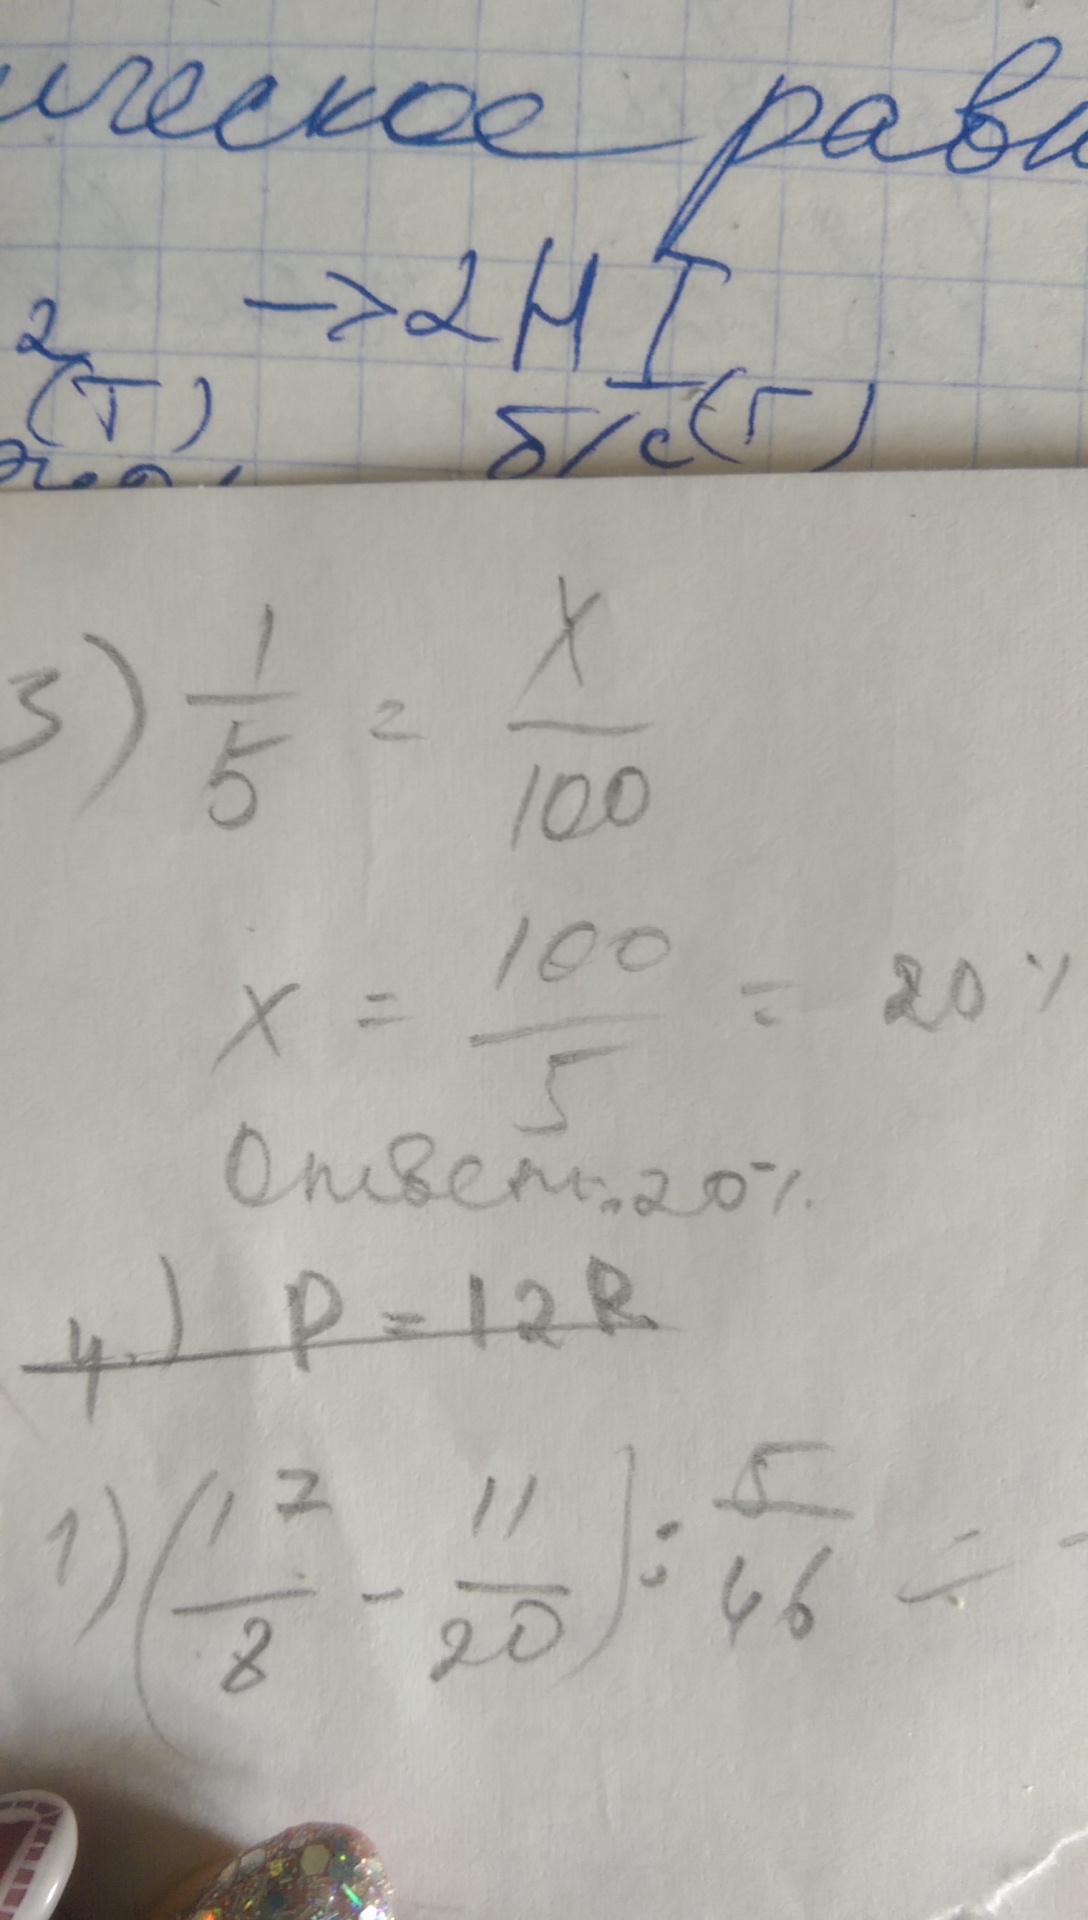 ическое равн
2(г) → 2HI(г)
б/с
3) 1/5 = x/100
x = 100/5 = 20%
Ответ: 20%.
4.) P = 12R
1) (17/8 - 11/20) : 5/46 =